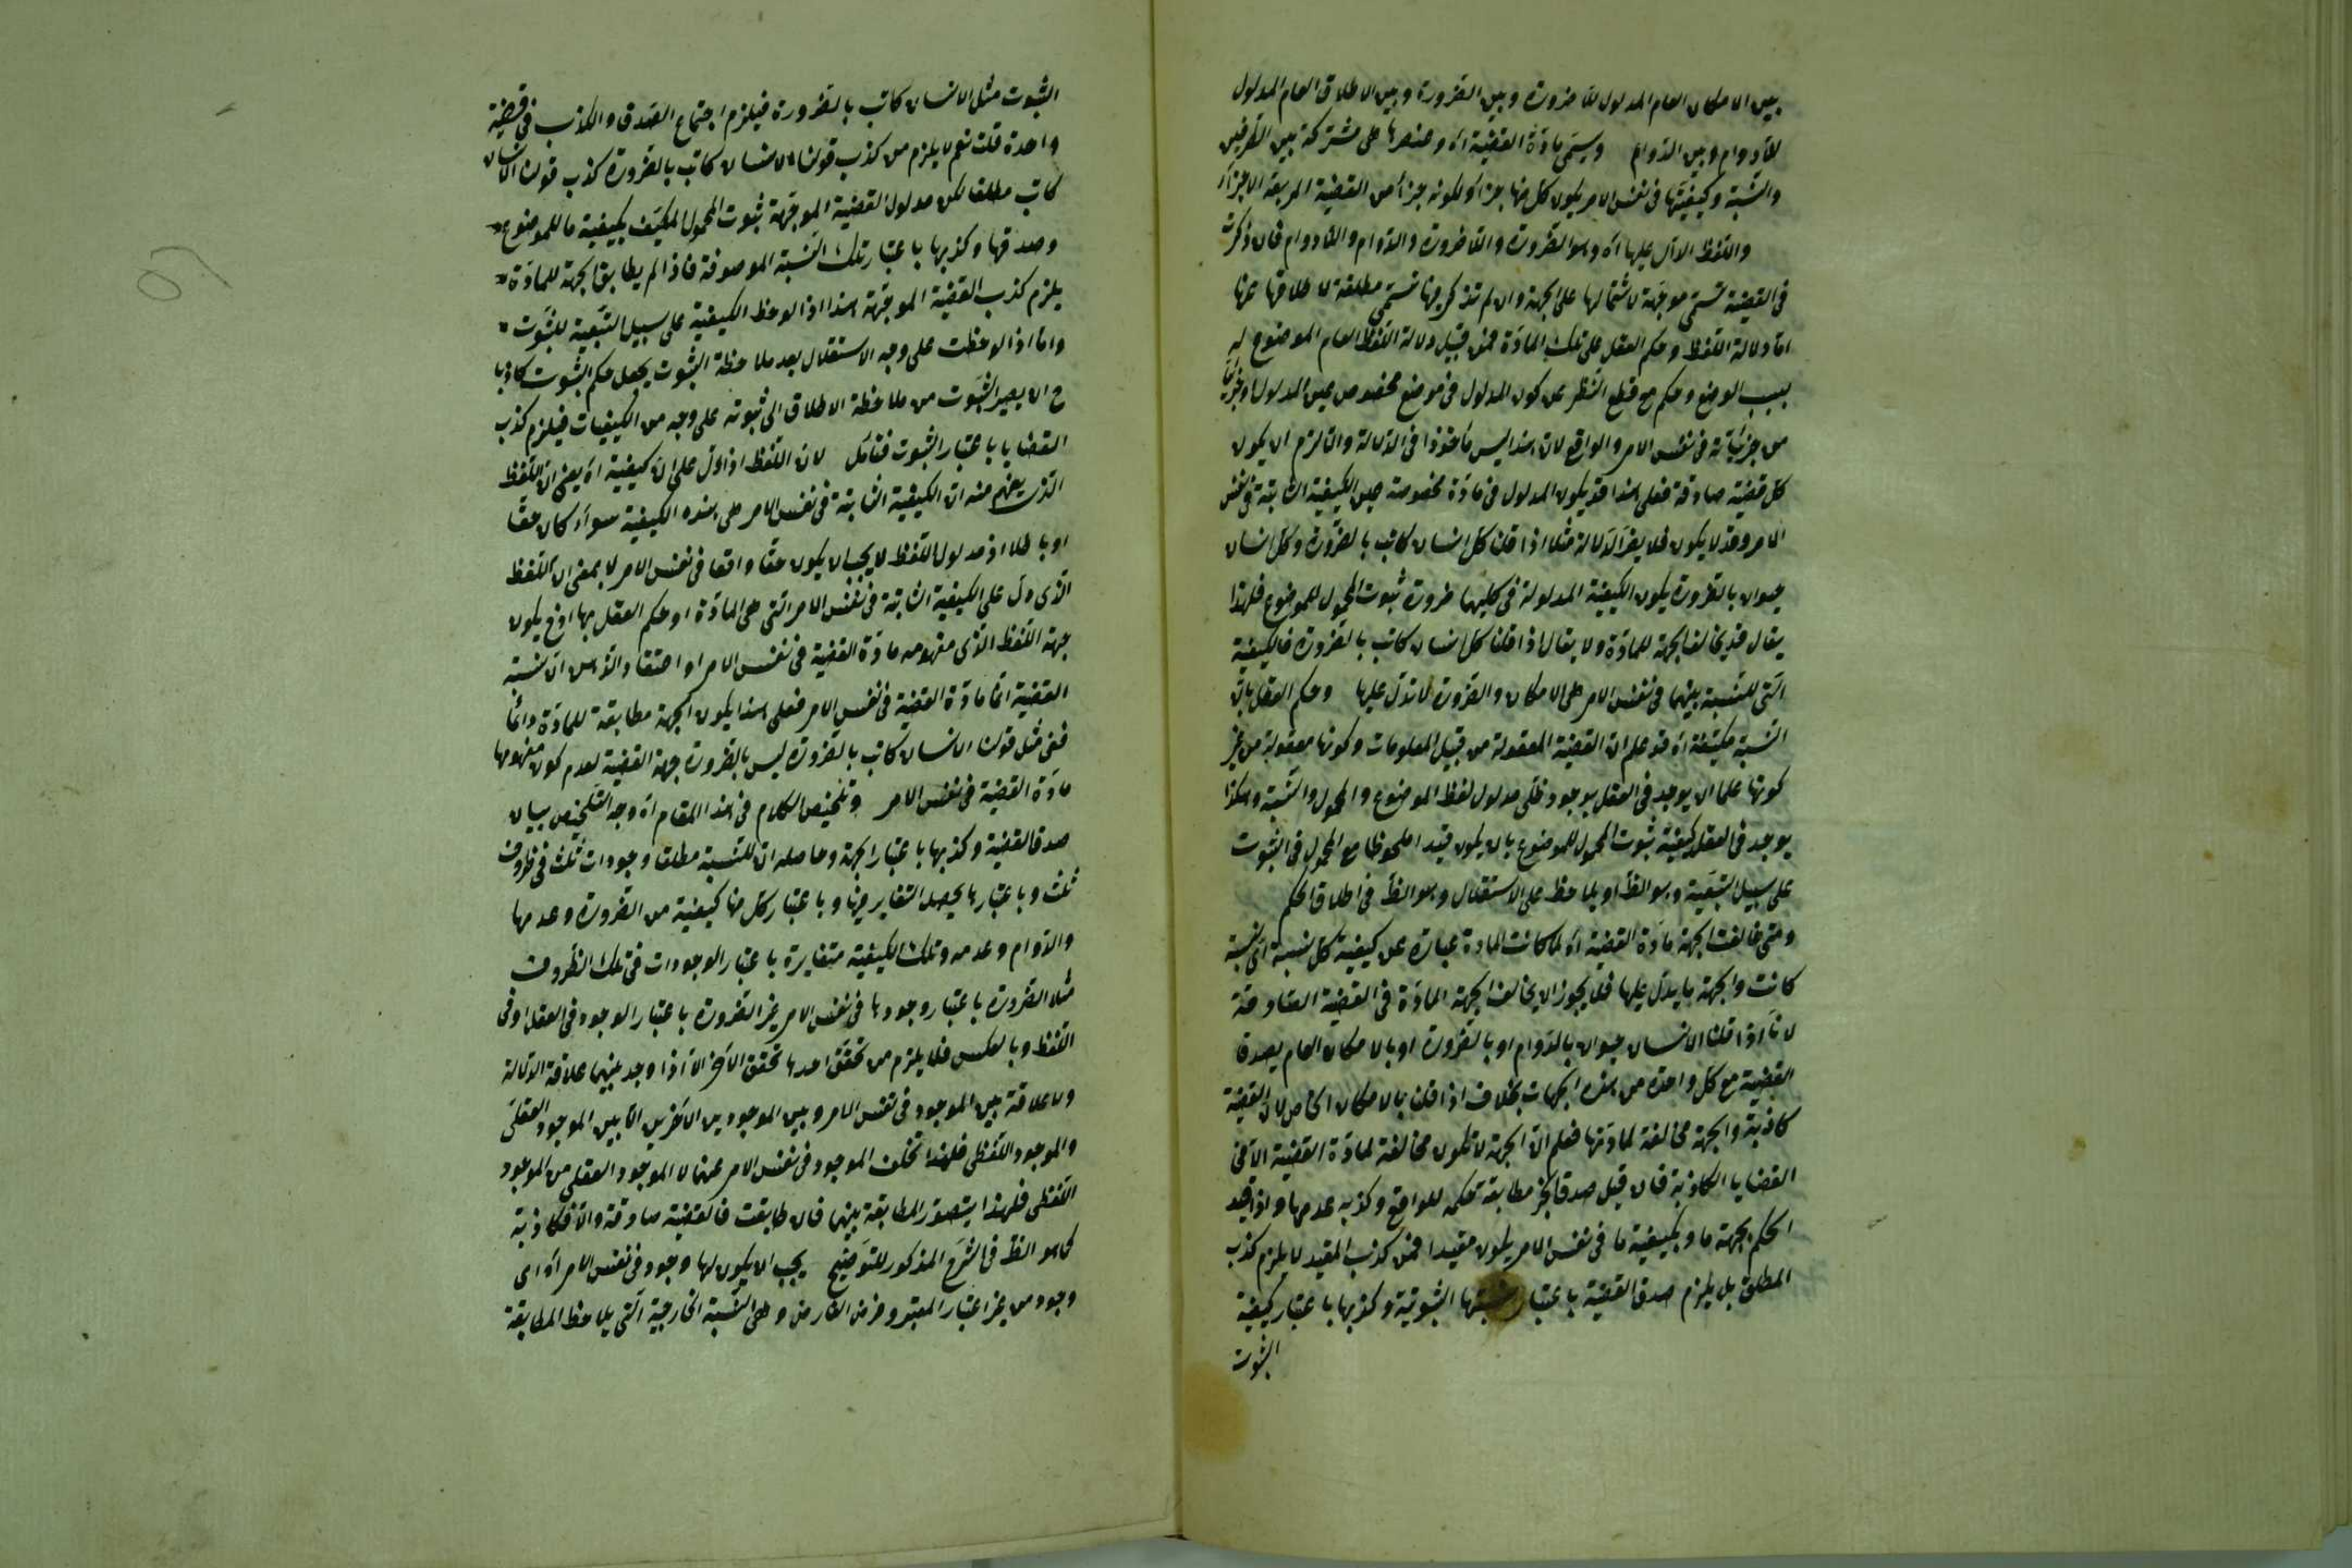 بين الامكان العام المدلول للاضرورة وبين الضرورة وبين الاطلاق العام المدلول
للادوام وبين الدوام وتسمى مادة القضية اه وعنصرها هى مشتركة بين الطرفين
والنسبة وكيفيتها فى نفس الامر يكون كل منها جزأ ولكونه جزأ من القضية المربعة الاجزاء
واللفظ الدال عليها اه وهو الضرورة واللاضرورة والدوام واللادوام فان ذكرت
فى القضية تسمى موجهة لاشتمالها على الجهة وان لم تذكر فيها تسمى مطلقة لاطلاقها عنها
اما دلالة اللفظ وحكم العقل على تلك المادة فمن قبيل دلالة اللفظ العام الموضوع له
بسبب الوضع وحكم مع قطع النظر عن كون المدلول فى موضع مخصوص عين المدلول
من جزئياته فى نفس الامر والواقع لان هذا ليس مأخوذا فى الدلالة والا لزم ان يكون
كل قضية صادقة فعلى هذا قد يكون المدلول فى مادة مخصوصة عين الكيفية الثابتة فى نفس
الامر وقد لا يكون فلا يضر الدلالة مثلا اذا قلنا كل انسان كاتب بالضرورة وكل انسان
حيوان بالضرورة يكون الكيفية المدلولة فى كليهما ضرورة ثبوت المحمول للموضوع فلهذا
يقال قد يخالف الجهة للمادة ولا يقال اذا قلنا كل انسان كاتب بالضرورة فالكيفية
التى للنسبة بينهما فى نفس الامر هى الامكان والضرورة لا تدل عليها وحكم العقل بان
النسبة مكيفة اه قد علم ان القضية المعقولة من قبيل المعلومات وكونها معقولة من غير
كونها علما ان يوجد فى العقل بوجود ظلى مدلول لفظ الموضوع والمحمول والنسبة وهكذا
يوجد فى العقل كيفية ثبوت المحمول للموضوع بان يكون قيدا ملحوظا مع المحمول فى الثبوت
على سبيل التبعية وهو الظ او يلاحظ على الاستقلال وهو الظ فى اطلاق الحكم
ومتى خالفت الجهة مادة القضية اه لما كانت المادة عبارة عن كيفية كل نسبة اى نسبة
كانت والجهة ما يدل عليها فلا يجوز ان يخالف الجهة المادة فى القضية الصادقة
لانا اذا قلنا الانسان حيوان بالدوام او بالضرورة او بالامكان العام يصدق
القضية مع كل واحدة من هذه الجهات بخلاف اذا قلنا بالامكان الخاص لان القضية
كاذبة والجهة مخالفة لمادتها فعلم ان الجهة لا تكون مخالفة لمادة القضية الا فى
القضايا الكاذبة فان قيل صدق الخبر مطابقة حكمه للواقع وكذبه عدمها واذا قيد
الحكم بجهة ما وبكيفية ما فى نفس الامر يكون مقيدا فمن كذب المقيد لا يلزم كذب
المطلق بل يلزم صدق القضية باعتبار نسبتها الثبوتية وكذبها باعتبار كيفية
الثبوت
الثبوت مثل الانسان كاتب بالضرورة فيلزم اجتماع الصدق والكذب فى قضية
واحدة قلت نعم لا يلزم من كذب قولنا الانسان كاتب بالضرورة كذب قولنا الانسان
كاتب مطلقا لكن مدلول القضية الموجهة ثبوت المحمول المكيف بكيفية ما للموضوع
وصدقها وكذبها باعتبار تلك النسبة الموصوفة فاذا لم يطابق الجهة للمادة
يلزم كذب القضية الموجهة هذا اذا لوحظ الكيفية على سبيل التبعية للثبوت
واما اذا لوحظت على وجه الاستقلال بعد ملاحظة الثبوت يجعل حكم الثبوت كاذبا
ح ان يصير الثبوت من ملاحظة الاطلاق الى ثبوته على وجه من الكيفيات فيلزم كذب
القضايا باعتبار الثبوت فتأمل لان اللفظ اذا دل على ان كيفية اه يعنى ان اللفظ
الذى يفهم منه ان الكيفية الثابتة فى نفس الامر هى هذه الكيفية سواء كان حقا
او باطلا اذ مدلول اللفظ لا يجب ان يكون حقا واقعا فى نفس الامر لا بمعنى ان اللفظ
الذى دل على الكيفية الثابتة فى نفس الامر التى هى المادة او حكم العقل بها اذ ح يكون
جهة اللفظ الذى مفهومه مادة القضية فى نفس الامر او اعتقاد الذهن ان نسبة
القضية انها مادة القضية فى نفس الامر فعلى هذا يكون الجهة مطابقة للمادة دائما
ففى مثل قولنا الانسان كاتب بالضرورة ليس بالضرورة جهة القضية لعدم كون مفهومها
مادة القضية فى نفس الامر وتلخيص الكلام فى هذا المقام اه وجه التلخيص بيان
صدق القضية وكذبها باعتبار الجهة وحاصله ان للنسبة مطلقا وجودات ثلث فى ظروف
ثلث وباعتبارها يحصل التغاير فيها وباعتبار كل منها كيفية من الضرورة وعدمها
والدوام وعدمه وتلك الكيفية متغايرة باعتبار الوجودات فى تلك الظروف
مثلا الضرورة باعتبار وجودها فى نفس الامر غير الضرورة باعتبار الوجود فى العقل او فى
اللفظ وبالعكس فلا يلزم من تحقق احدها تحقق الآخر الا اذا وجد بينهما علاقة الدلالة
ولا علاقة بين الموجود فى نفس الامر وبين الموجودين الآخرين الا بين الموجود العقلى
والموجود اللفظى فلهذا تخلف الموجود فى نفس الامر عنهما لا الموجود العقلى من الموجود
اللفظى فلهذا يتصور المطابقة بينهما فان طابقت فالقضية صادقة والا فكاذبة
كما هو الظ فى الشرح المذكور للتوضيح يجب ان يكون لها وجود فى نفس الامر اه اى
وجود من غير اعتبار المعتبر وفرض الفارض وهى النسبة الخارجية التى يلاحظ المطابقة